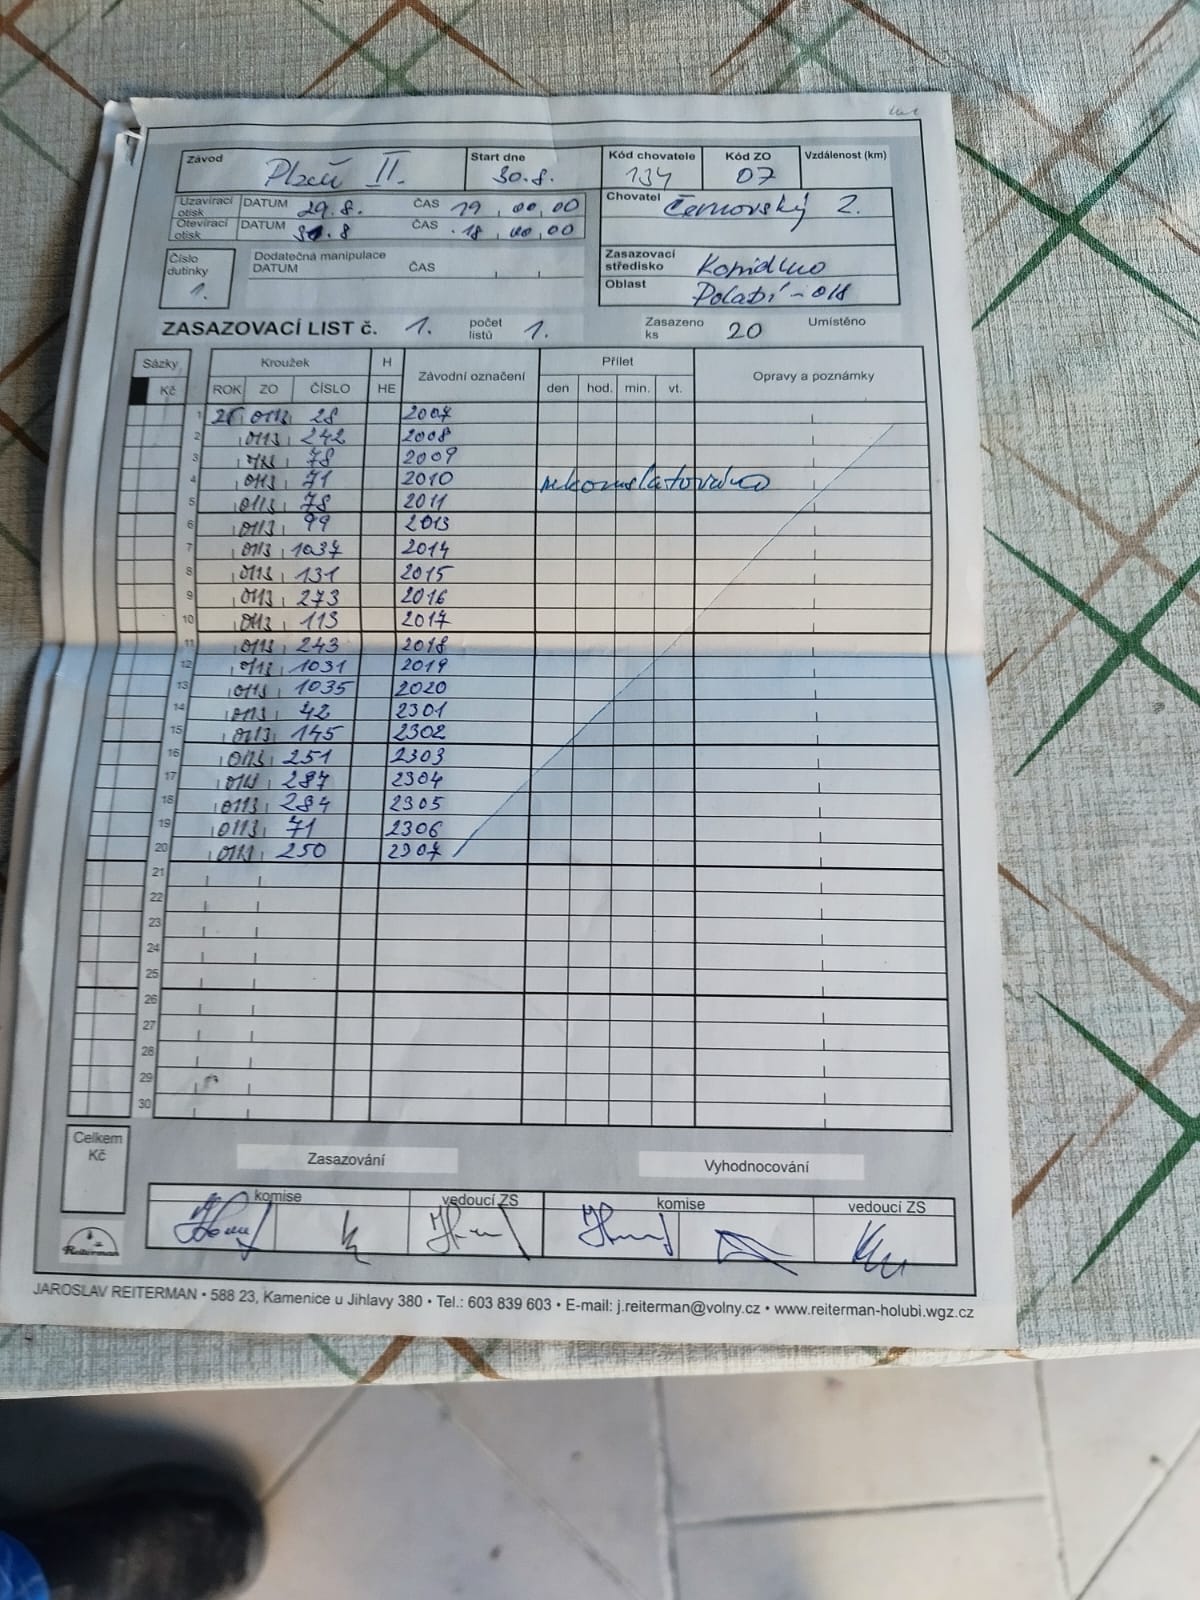 Závod Plzeň II. Start dne 30.8. Kód chovatele 134 Kód ZO 07 Vzdálenost (km)
Uzavírací otisk DATUM 29.8. ČAS 19,00,00
Otevírací otisk DATUM 30.8 ČAS 18,00,00
Chovatel Černovský Z.
Číslo dutinky 1.
Dodatečná manipulace
DATUM ČAS
Zasazovací středisko Kopidlno
Oblast Polabí - 018
ZASAZOVACÍ LIST č. 1. počet listů 1. Zasazeno ks 20 Umístěno
Sázky Kroužek H Závodní označení Přílet Opravy a poznámky
Kč ROK ZO ČÍSLO HE den hod. min. vt.
1 25 0113 28 2007
2 0113 242 2008
3 0113 78 2009
4 0113 71 2010
5 0113 78 2011
6 0113 99 2013
7 0113 1037 2014
8 0113 131 2015
9 0113 273 2016
10 0113 113 2017
11 0113 243 2018
12 0113 1031 2019
13 0113 1035 2020
14 0113 42 2301
15 0113 145 2302
16 0113 251 2303
17 0113 287 2304
18 0113 284 2305
19 0113 71 2306
20 0113 250 2307
21
22
23
24
25
26
27
28
29
30
Celkem Kč
Zasazování Vyhodnocování
komise vedoucí ZS komise vedoucí ZS
Reiterman
JAROSLAV REITERMAN • 588 23, Kamenice u Jihlavy 380 • Tel.: 603 839 603 • E-mail: j.reiterman@volny.cz • www.reiterman-holubi.wgz.cz